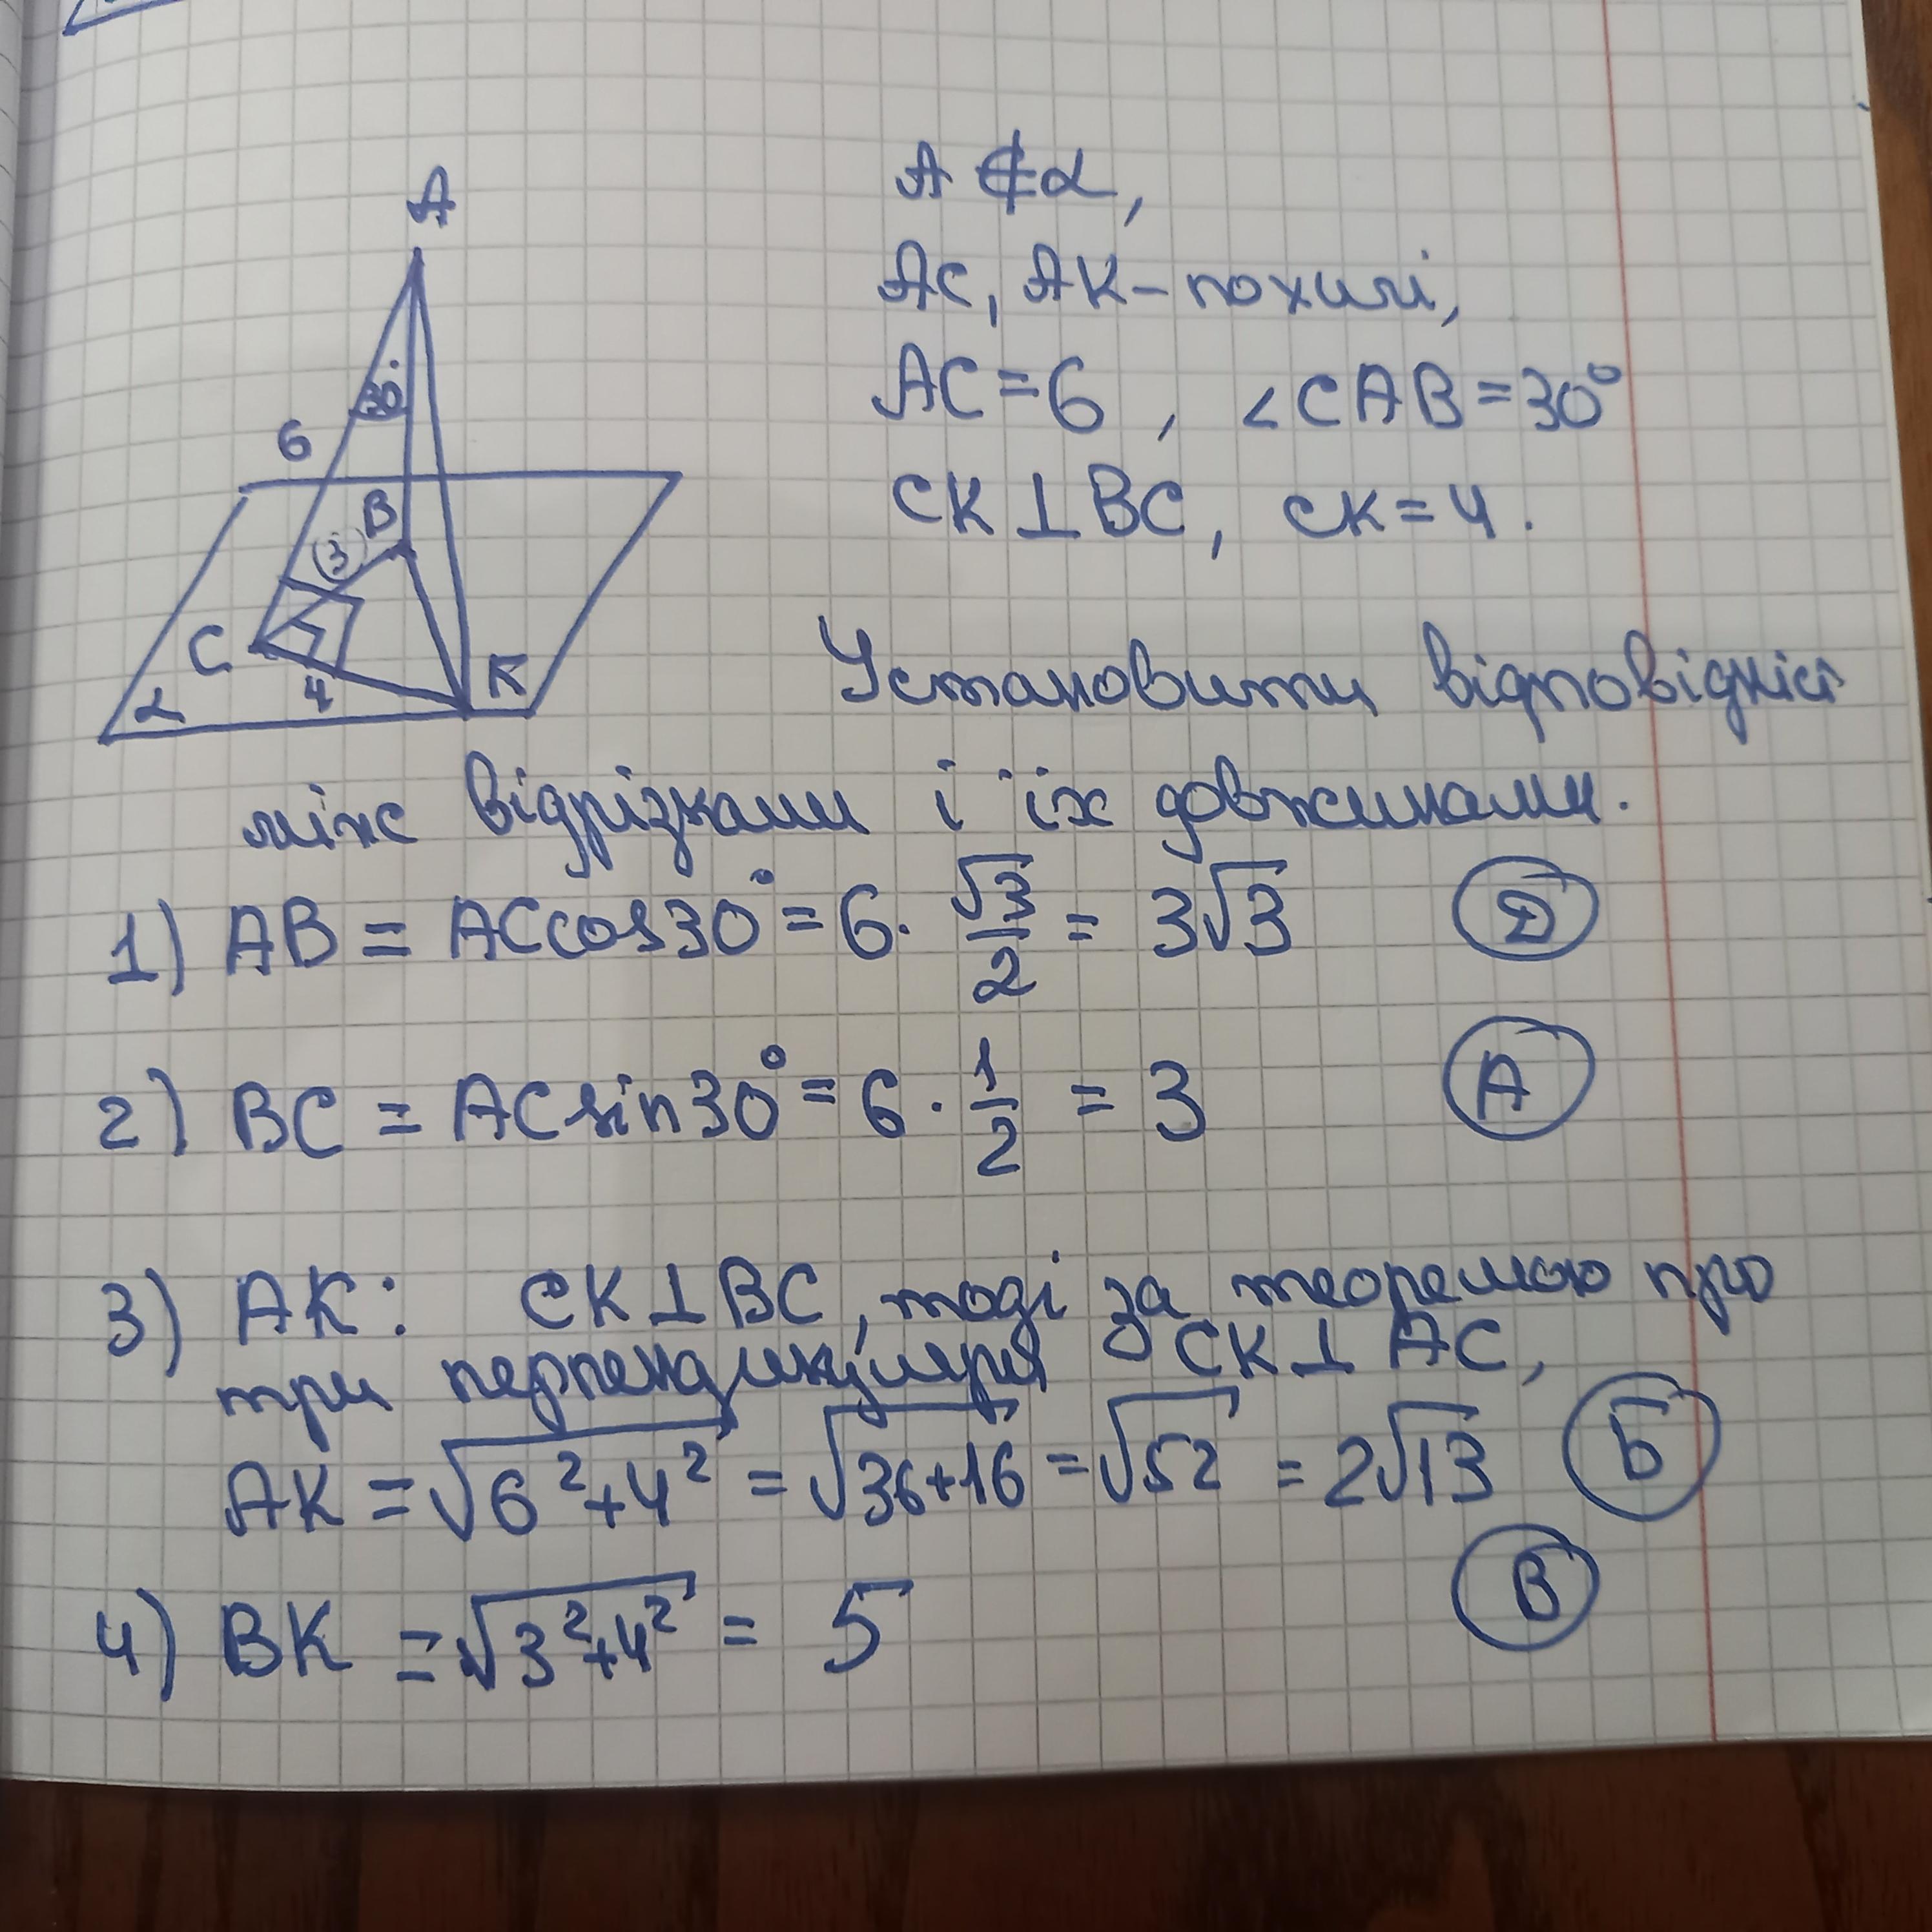 A ∉ α,
AC, AK – похилі,
AC = 6, ∠CAB = 30°
CK ⊥ BC, CK = 4.
A
30°
6
B
3
C
4
K
α
Установити відповідніс
між відрізками і їх довжинами.
1) AB = AC cos30° = 6 · √3/2 = 3√3 Д
2) BC = AC sin30° = 6 · 1/2 = 3 А
3) AK: CK ⊥ BC, тоді за теоремою про
три перпендикуляри CK ⊥ AC,
AK = √6²+4² = √36+16 = √52 = 2√13 Б
4) BK = √3²+4² = 5 В